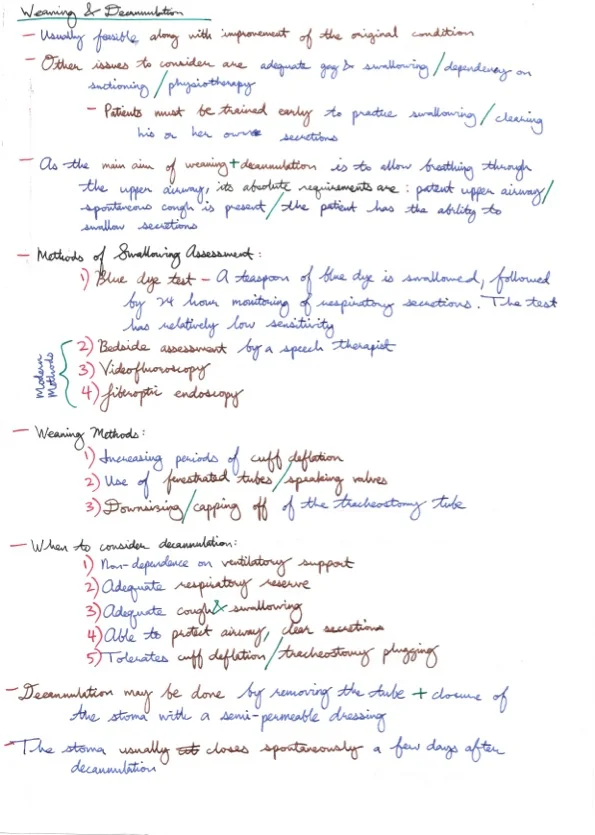 Weaning & Decannulation
- Usually feasible along with improvement of the original condition
- Other issues to consider are adequate gag & swallowing / dependency on
suctioning / physiotherapy
- Patients must be trained early to practice swallowing / clearing
his or her own secretions
- As the main aim of weaning + decannulation is to allow breathing through
the upper airway, its absolute requirements are : patent upper airway /
spontaneous cough is present / the patient has the ability to
swallow secretions
- Methods of Swallowing Assessment :
1) Blue dye test - A teaspoon of blue dye is swallowed, followed
by 24 hour monitoring of respiratory secretions. The test
has relatively low sensitivity
Modern Methods
2) Bedside assessment by a speech therapist
3) Videofluoroscopy
4) fiberoptic endoscopy
- Weaning Methods :
1) Increasing periods of cuff deflation
2) Use of fenestrated tubes / speaking valves
3) Downsizing / capping off of the tracheostomy tube
- When to consider decannulation :
1) Non-dependence on ventilatory support
2) Adequate respiratory reserve
3) Adequate cough & swallowing
4) Able to protect airway, clear secretions
5) Tolerates cuff deflation / tracheostomy plugging
- Decannulation may be done by removing the tube + closure of
the stoma with a semi-permeable dressing
- The stoma usually closes spontaneously a few days after
decannulation